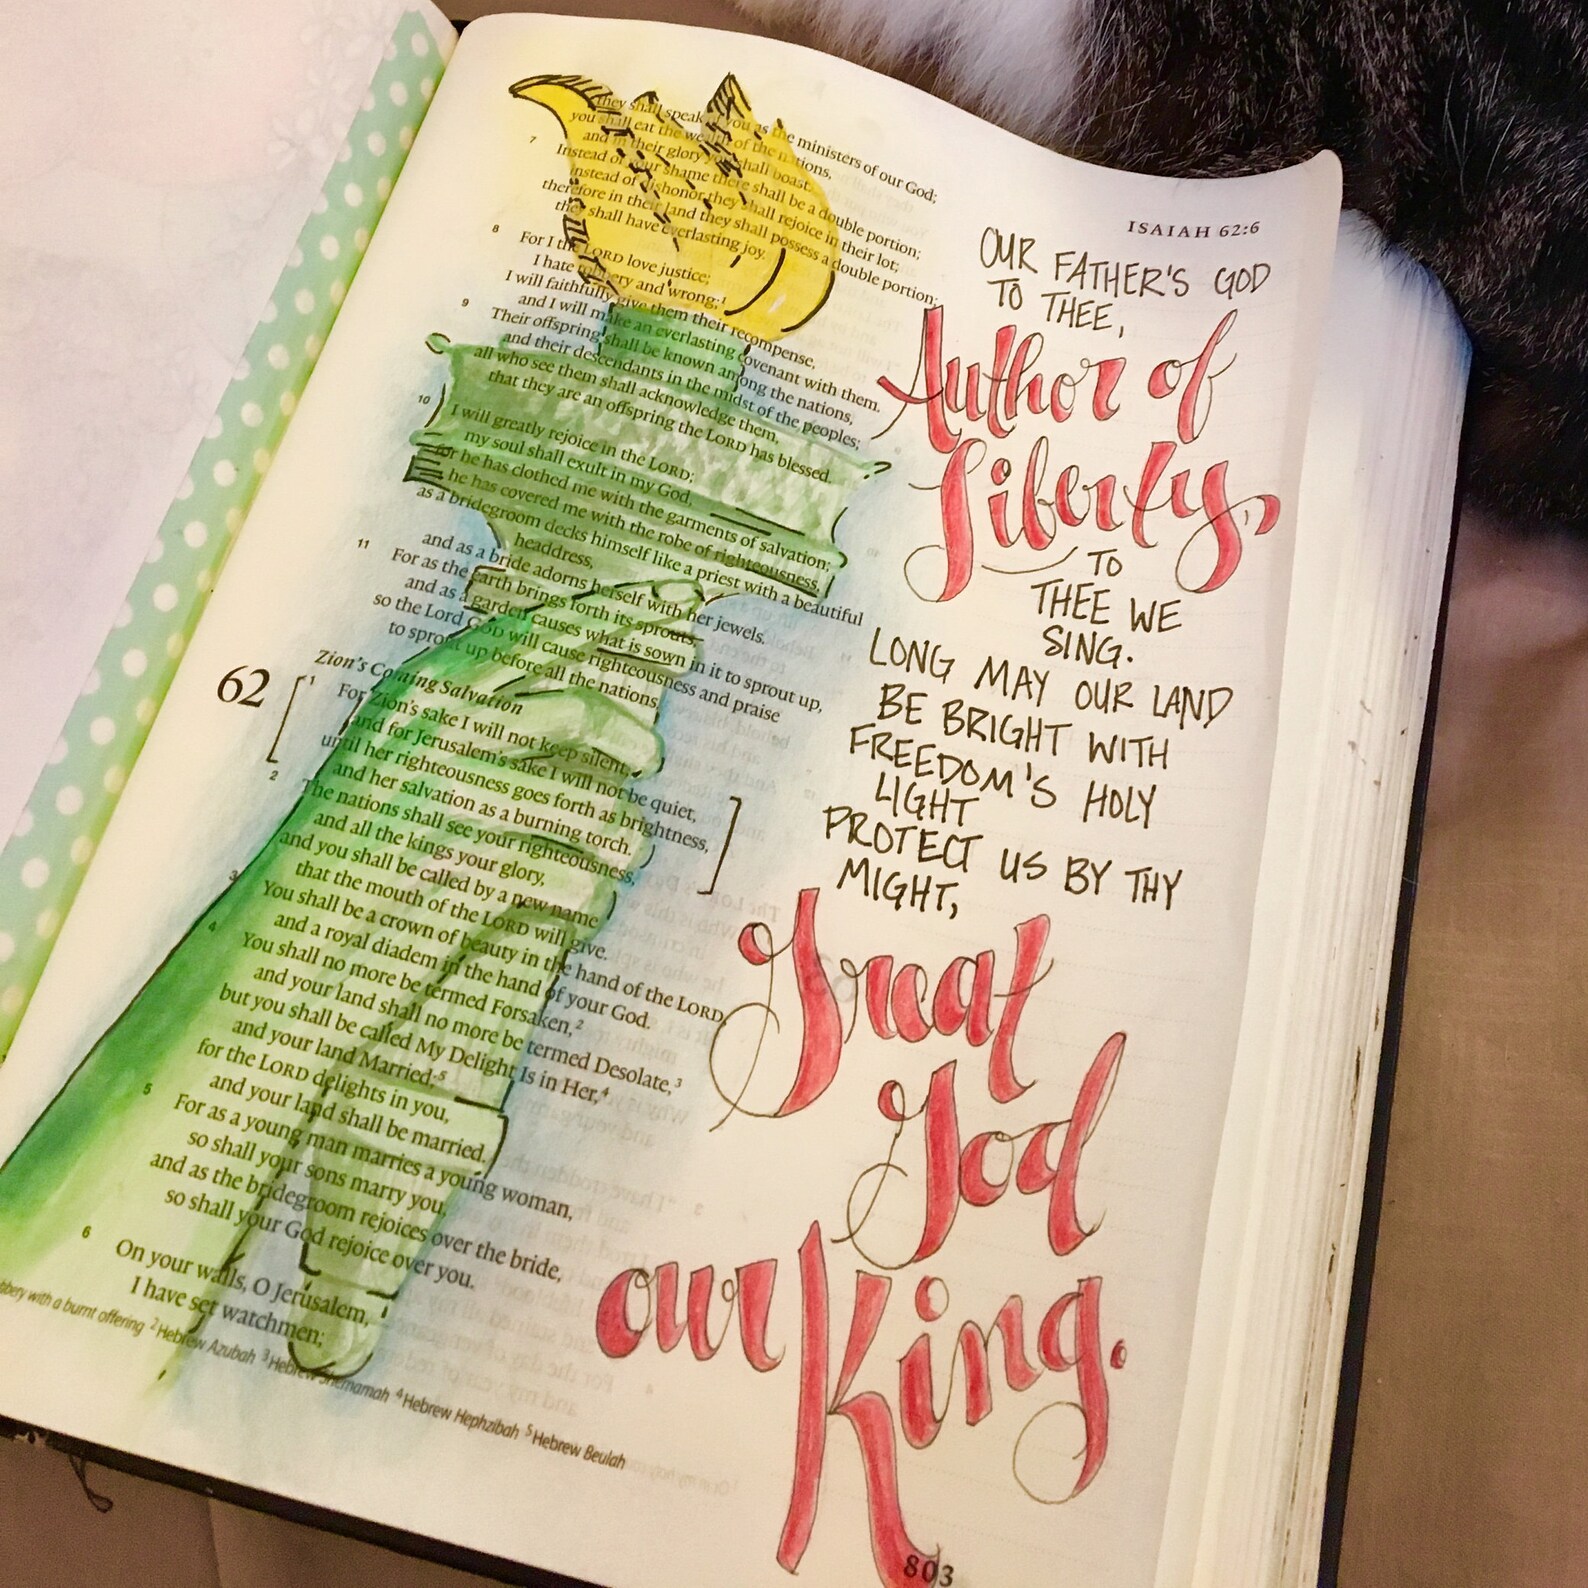 ISAIAH 62:6
They shall speak of you as the ministers of our God;
you shall eat the wealth of the nations,
and in their glory you shall boast.
7 Instead of your shame there shall be a double portion;
instead of dishonor they shall rejoice in their lot;
therefore in their land they shall possess a double portion;
they shall have everlasting joy.
8 For I the LORD love justice;
I hate robbery and wrong;1
I will faithfully give them their recompense,
and I will make an everlasting covenant with them.
9 Their offspring shall be known among the nations,
and their descendants in the midst of the peoples;
all who see them shall acknowledge them,
that they are an offspring the LORD has blessed.
10 I will greatly rejoice in the LORD;
my soul shall exult in my God,
for he has clothed me with the garments of salvation;
he has covered me with the robe of righteousness,
as a bridegroom decks himself like a priest with a beautiful
headdress,
and as a bride adorns herself with her jewels.
11 For as the earth brings forth its sprouts,
and as a garden causes what is sown in it to sprout up,
so the Lord GOD will cause righteousness and praise
to sprout up before all the nations.
Zion's Coming Salvation
62 1 For Zion's sake I will not keep silent,
and for Jerusalem's sake I will not be quiet,
until her righteousness goes forth as brightness,
and her salvation as a burning torch.
2 The nations shall see your righteousness,
and all the kings your glory,
and you shall be called by a new name
that the mouth of the LORD will give.
3 You shall be a crown of beauty in the hand of the LORD,
and a royal diadem in the hand of your God.
4 You shall no more be termed Forsaken,2
and your land shall no more be termed Desolate,3
but you shall be called My Delight Is in Her,4
and your land Married;5
for the LORD delights in you,
and your land shall be married.
5 For as a young man marries a young woman,
so shall your sons marry you,
and as the bridegroom rejoices over the bride,
so shall your God rejoice over you.
6 On your walls, O Jerusalem,
I have set watchmen;
bbery with a burnt offering 2Hebrew Azubah 3Hebrew Shemamah 4Hebrew Hephzibah 5Hebrew Beulah
OUR FATHER'S GOD
TO THEE,
Author of
Liberty,
TO
THEE WE
SING.
LONG MAY OUR LAND
BE BRIGHT WITH
FREEDOM'S HOLY
LIGHT
PROTECT US BY THY
MIGHT,
Great
God
our
King.
803